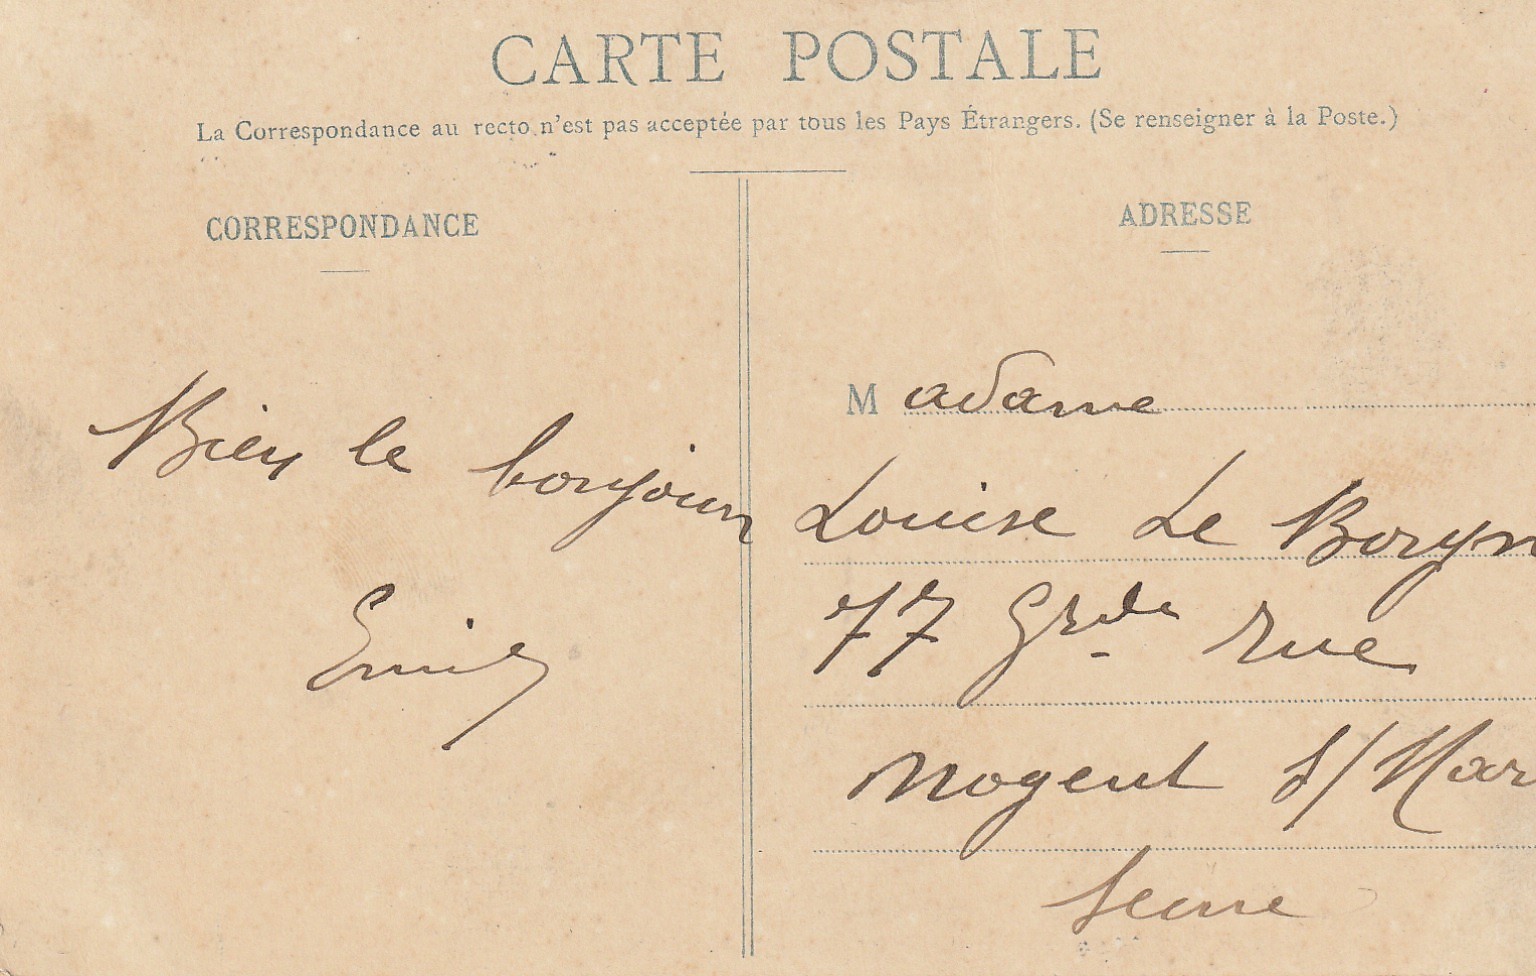 CARTE POSTALE
La Correspondance au recto n'est pas acceptée par tous les Pays Étrangers. (Se renseigner à la Poste.)
CORRESPONDANCE
ADRESSE
Bien le bonjour
Madame
Louise Le
77 Grde rue
Nogent s/ Mar
Seine